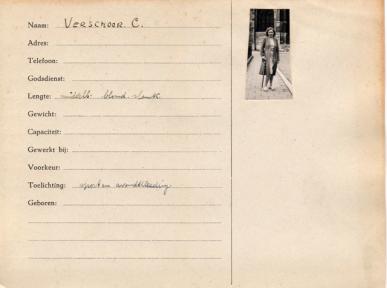 Naam: VERSCHOOR C.
Adres:
Telefoon:
Godsdienst:
Lengte: middelb. blond slank
Gewicht:
Capaciteit:
Gewerkt bij:
Voorkeur:
Toelichting: sport en avondkleeding
Geboren: